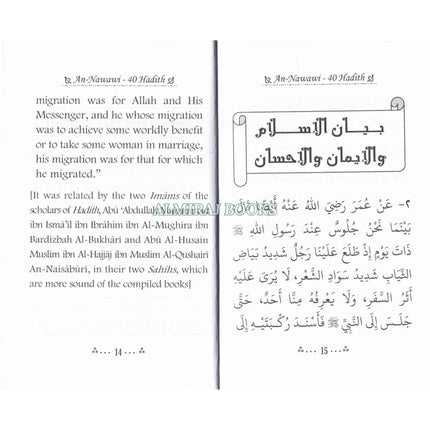 An-Nawawi - 40 Hadith
migration was for Allah and His
Messenger, and he whose migration
was to achieve some worldly benefit
or to take some woman in marriage,
his migration was for that for which
he migrated.”
[It was related by the two Imâms of the
scholars of Hadith, Abû ‘Abdullah Muhammad
ibn Ismâ‘îl ibn Ibrâhîm ibn Al-Mughîra ibn
Bardizbah Al-Bukhâri and Abû Al-Husain
Muslim ibn Al-Hajjâj ibn Muslim Al-Qushairi
An-Naisâbûri, in their two Sahîhs, which
are more sound of the compiled books]
14
An-Nawawi - 40 Hadith
بيان الإسلام
والإيمان والإحسان
٢- عَنْ عُمَرَ رَضِيَ اللهُ عَنْهُ أَيْضًا قَالَ
بَيْنَمَا نَحْنُ جُلُوسٌ عِنْدَ رَسُولِ اللهِ ﷺ
ذَاتَ يَوْمٍ إِذْ طَلَعَ عَلَيْنَا رَجُلٌ شَدِيدُ بَيَاضِ
الثِّيَابِ شَدِيدُ سَوَادِ الشَّعْرِ، لَا يُرَى عَلَيْهِ
أَثَرُ السَّفَرِ، وَلَا يَعْرِفُهُ مِنَّا أَحَدٌ، حَتَّى
جَلَسَ إِلَى النَّبِيِّ ﷺ فَأَسْنَدَ رُكْبَتَيْهِ إِلَى
15
ALMIRAJ BOOKS